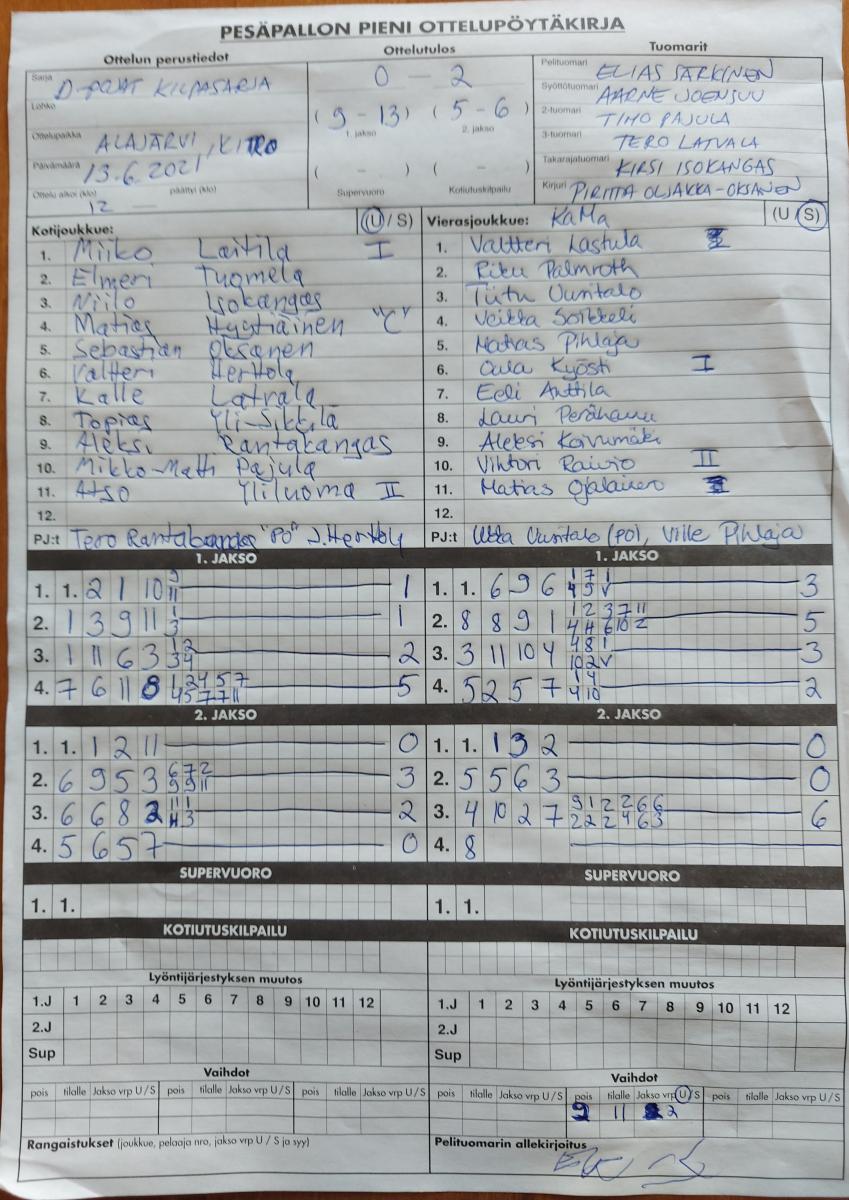 PESÄPALLON PIENI OTTELUPÖYTÄKIRJA
Ottelun perustiedot
Ottelutulos
Tuomarit
Sarja D-POJAT KILPASARJA
Lohko
Ottelupaikka ALAJÄRVI, KITRO
Päivämäärä 13.6.2021
Ottelu alkoi (klo) 12 päättyi (klo)
0 – 2
(9-13) (5-6)
1. jakso 2. jakso
( - ) ( - )
Supervuoro Kotiutuskilpailu
Pelituomari ELIAS SÄRKINEN
Syöttötuomari AARNE JOENSUU
2-tuomari TIMO PAJULA
3-tuomari TERO LATVALA
Takarajatuomari KIRSI ISOKANGAS
Kirjuri PIRITTA OLJAKKA-OKSANEN
Kotijoukkue: (U / S)
1. Miiko Laitila I
2. Elmeri Tuomela
3. Niilo Isokangas
4. Matias Hyytiäinen "C"
5. Sebastian Oksanen
6. Valtteri Herttola
7. Kalle Latvala
8. Topias Yli-Sikkilä
9. Aleksi Rantakangas
10. Mikko-Matti Pajula
11. Atso Yliluoma II
12.
PJ:t Tero Rantakangas "PO" J. Herttola
Vierasjoukkue: KaMa (U / S)
1. Valtteri Lastula
2. Riku Palmroth
3. Tiitu Uuritalo
4. Veikka Soikkeli
5. Matias Pihlaja
6. Oula Kyösti I
7. Eeli Anttila
8. Lauri
9. Aleksi Koivumäki
10. Vihtori Raivio II
11. Matias Ojalainen
12.
PJ:t Uuritalo (PO), Ville Pihlaja
1. JAKSO
1. 1. 2 1 10 9 11 1
2. 1 3 9 11 1 3 1
3. 1 11 6 3 1 2 3 4 2
4. 7 6 11 8 1 2 4 5 7 4 5 7 7 11 5
1. JAKSO
1. 1. 6 9 6 1 7 1 4 5 V 3
2. 8 8 9 1 1 2 3 7 11 4 4 6 10 2 5
3. 3 11 10 4 4 8 1 10 2 V 3
4. 5 2 5 7 1 4 4 10 2
2. JAKSO
1. 1. 1 2 11 0
2. 6 9 5 3 6 7 2 9 9 11 3
3. 6 6 8 2 11 1 3 2
4. 5 6 5 7 0
2. JAKSO
1. 1. 1 3 2 0
2. 5 5 6 3 0
3. 4 10 2 7 9 1 2 2 6 6 2 2 2 4 6 3 6
4. 8
SUPERVUORO
1. 1.
SUPERVUORO
1. 1.
KOTIUTUSKILPAILU
KOTIUTUSKILPAILU
Lyöntijärjestyksen muutos
1.J 1 2 3 4 5 6 7 8 9 10 11 12
2.J
Sup
Lyöntijärjestyksen muutos
1.J 1 2 3 4 5 6 7 8 9 10 11 12
2.J
Sup
Vaihdot
pois tilalle Jakso vrp U / S pois tilalle Jakso vrp U / S pois tilalle Jakso vrp U / S
Vaihdot
pois tilalle Jakso vrp U / S pois tilalle Jakso vrp U / S pois tilalle Jakso vrp U / S
9 11 2
Rangaistukset (joukkue, pelaaja nro, jakso vrp U / S ja syy)
Pelituomarin allekirjoitus